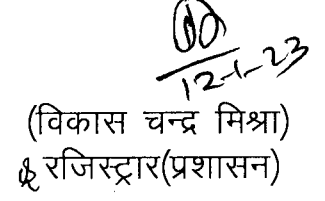 12-1-23
(विकास चन्द्र मिश्रा)
रजिस्ट्रार(प्रशासन)